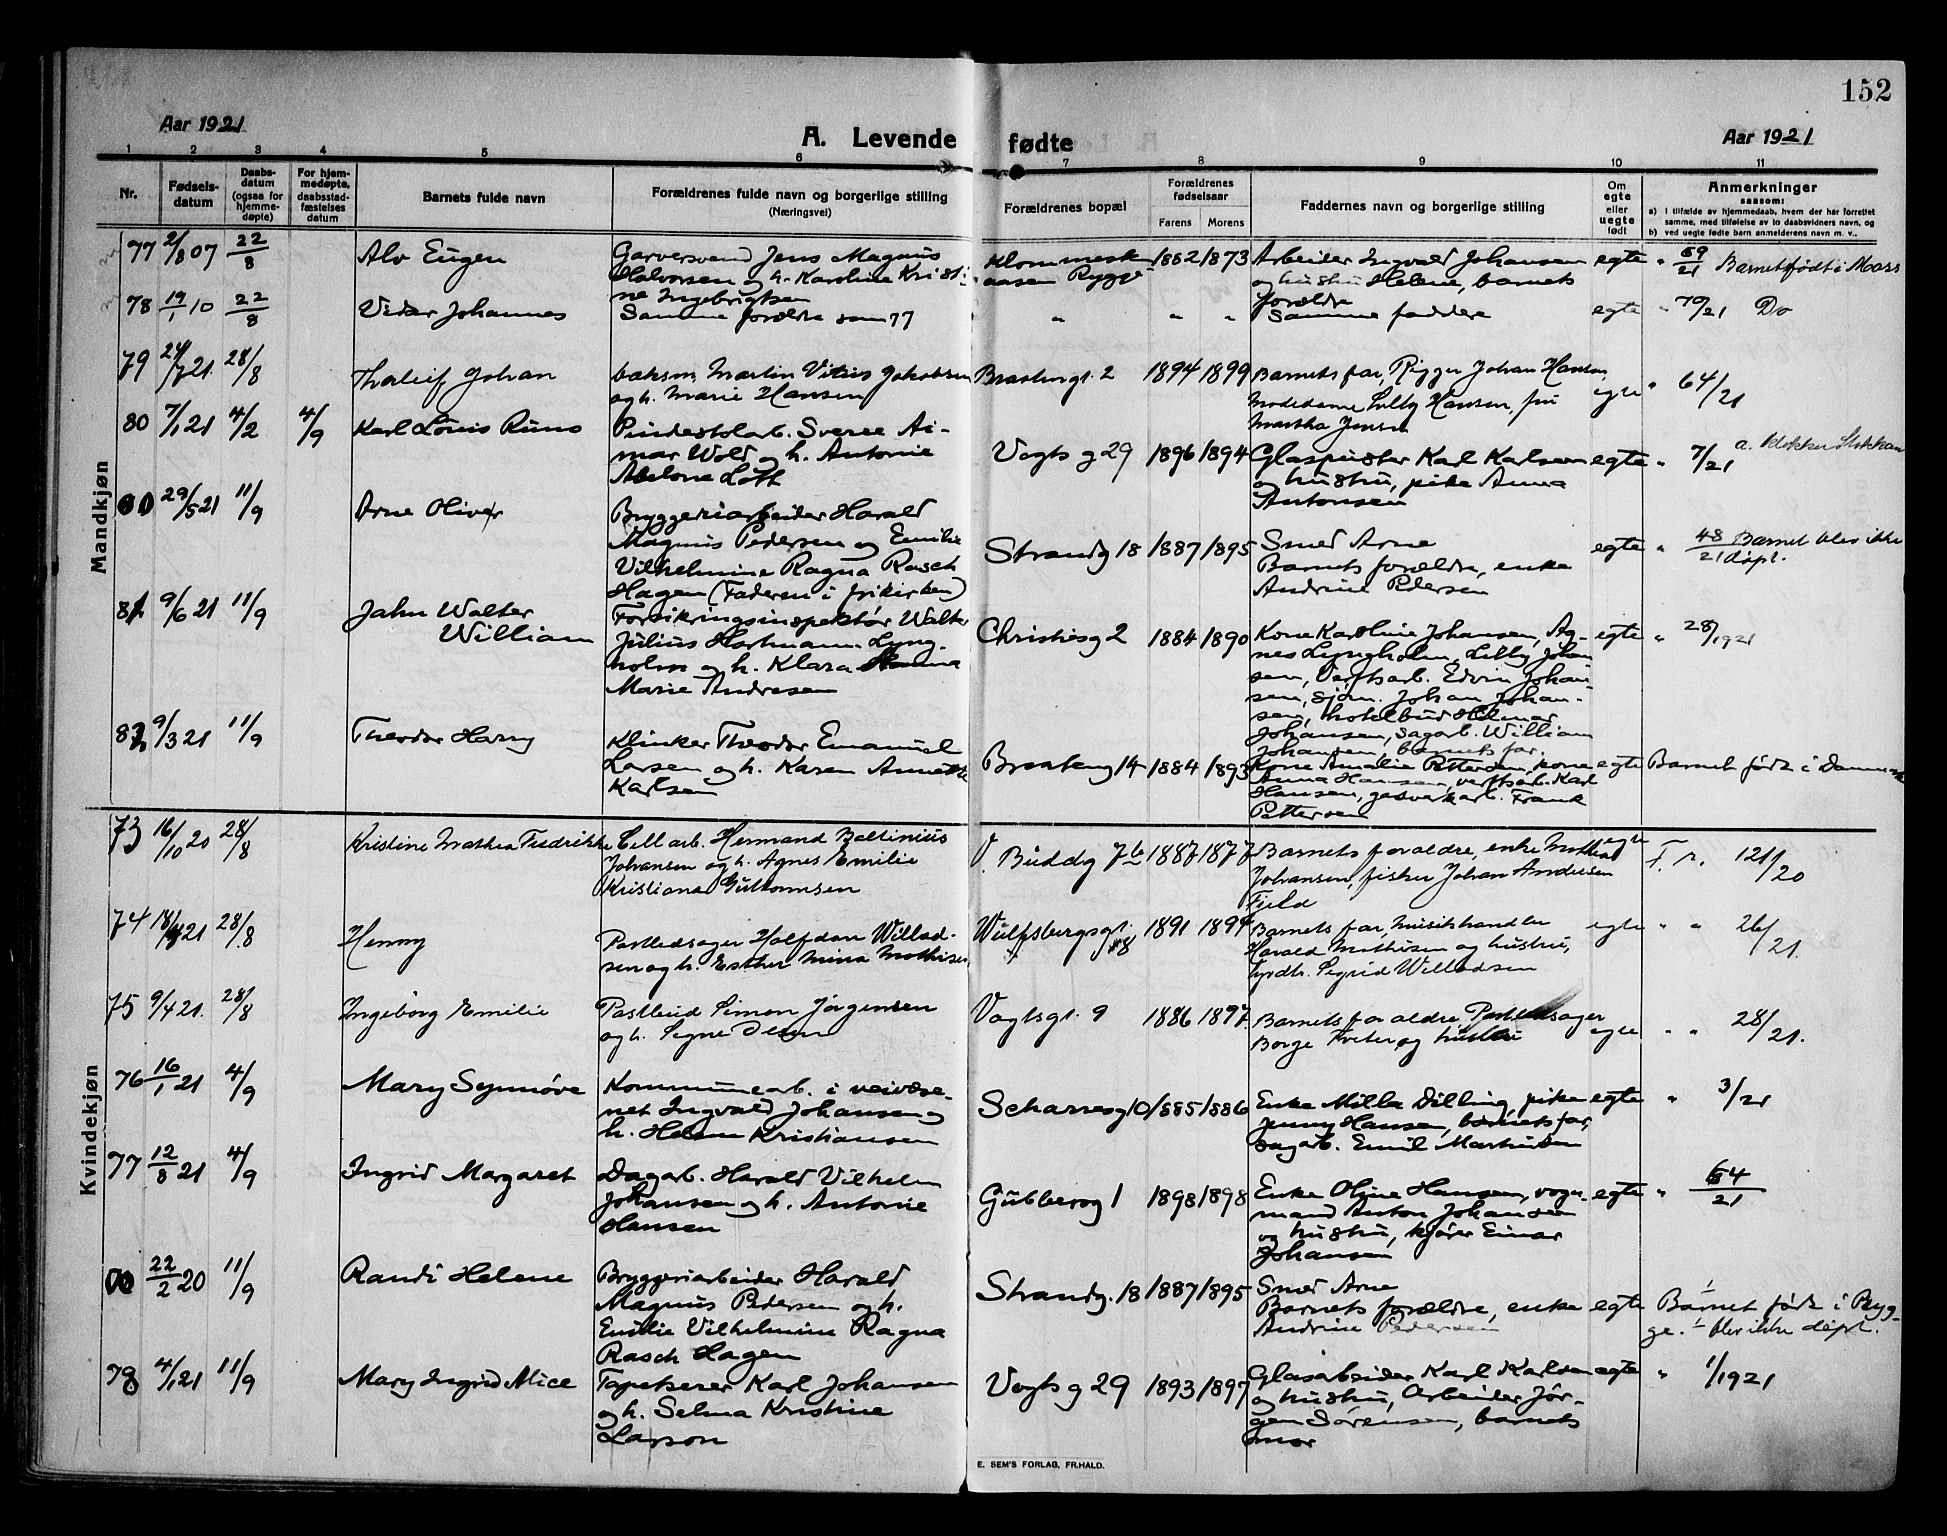 152
Aar 1921
A. Levende fødte
Aar 1921
1 2 3 4 5 6 7 8 9 10 11
Nr.
Fødsels-
datum
Daabs-
datum
(ogsaa for
hjemme-
døpte)
For hjem-
medøpte,
daabsstad-
fæstelses
datum
Barnets fulde navn
Forældrenes fulde navn og borgerlige stilling
(Næringsvei)
Forældrenes bopæl
Forældrenes
fødselsaar
Farens Morens
Faddernes navn og borgerlige stilling
Om
egte
eller
uegte
født
Anmerkninger
saasom:
a) I tilfælde av hjemmedaab, hvem der har forrettet
samme, med tilføielse av to daabsvidners navn, og
b) ved uegte født barn anmelderens navn m. v.,
Mandkjøn
77 2/8 07 22/8 Alv Eugen
Garversvend Jens Magnus
Halvorsen og h. Karoline Kristi-
ne Ingebrigtsen
Rygge
1882 1873
Arbeider Ingvald Johansen
og hustru Helene, barnets
forældre
egte " 69/21 Barnet født i Moss
78 19/1 10 22/8 Vidar Johannes
Samme forældre som 77
" " "
Samme faddere
egte " 70/21 Do
79 24/7 21. 28/8 Tholeif Johan
Martin Jakobsen
og h. Marie Hansen
2 1894 1899
Barnets far, Rigger Johan Hansen,
Modedame Lilly Hansen, fru
Martha Jensen
egte " 64/21
80 7/1 21 4/2 4/9 Karl Louis Runo
Sverre Ai-
mar Wold og h. Antonie
Abelone Loth
Vogts g 29 1896 1894
Glaspuster Karl Karlsen
og hustru, pike Anna
Antonsen
egte " 7/21 a. klokker
29/5 21 11/9 Arne Oliver
Bryggeriarbeider Harald
Magnus Pedersen og Emilie
Vilhelmine Ragna Rasch
Hagen (Faderen i frikirken)
Strandg 18 1887 1895
Smed Arne
Barnets forældre, enke
Andrine Pedersen
egte " 48/21 Barnet blev ikke
døpt.
81 9/6 21 11/9 Jahn Walter
William
Forsikringsinspektør Walter
Julius Hartmann Lyng-
holm og h. Klara
Marie Andresen
Christiesg 2 1884 1890
Kone Karoline Johansen, Ag-
nes Lyngholm, Lilly Johan
sen, Verftsarb. Edvin Johan-
sen, sjøm. Johan Johan-
sen, hotelbud Hilmar
Johansen, sagarb. William
Johansen, barnets far.
egte " 28/1921
82 9/3 21 11/9 Theodor Harry
Klinker Theodor Emanuel
Larsen og h. Karen Annette
Karlsen
Braateng 14 1884 1893
Kone Amalie Pettersen, kone
Anna Hansen, verftsarb. Karl
Hansen, gasverkarb. Frank
Pettersen
egte Barnet født i
Kvindekjøn
73 16/10 20 28/8 Kristine Mathea Fredrikke
Cell arb. Hermand Baltinius
Johansen og h. Agnes Emilie
Kristiana Guttormsen
V. Buddg 7b 1887 1877
Barnets forældre, enke
Johansen, fisker Johan Andersen
Fjeld
egte F. r. 121/20
74 18/4 21 28/8 Henny
Postledsager Halfdan Willad-
sen og h. Esther Mina Mathisen
Wulfsbergsgt. 8 1891 1894
Barnets far, Musikhandler
Harald Mathisen og hustru,
Sigrid Willadsen
egte " " 26/21.
75 9/4 21. 28/8 Ingeborg Emilie
Postbud Simon Jørgensen
og h. Signe Olsen
Vogtsgt. 9 1886 1897
Barnets forældre Postledsager
Borge Tveter og hustru
egte " " 28/21.
76 16/1 21 4/9 Mary Synnøve
Kommunearb. i veivæse-
net Ingvald Johansen og
h. Helene Kristiansen
Scharresg 10 1885 1886
Enke Milla Dilling, pike
Jenny Hansen, barnets far,
sagarb. Emil Martinsen
egte " 3/21
77 12/8 21 4/9 Ingrid Margaret
Dagarb. Harald Vilhelm
Johansen og h. Antonie
Hansen
Gubberog 1 1898 1898
Enke Oline Hansen, vogn-
mand Anton Johansen
og hustru, kjører Einar
Johansen
egte " 64/21
22/2 20 11/9 Randi Helene
Bryggeriarbeider Harald
Magnus Pedersen og h.
Emilie Vilhelmine Ragna
Rasch Hagen
Strandg. 18 1887 1895
Smed Arne
Barnets forældre, enke
Andrine Pedersen
egte Barnet født i Ryg-
ge. blev ikke døpt.
78 4/1 21 11/9 Mary Ingrid Alice
Tapetserer Karl Johansen
og h. Selma Kristine
Larson
Vogts g 29 1893 1897
Glasarbeider Karl Karlsen
og hustru, Arbeider Jør-
gen Sørensen, barnets
mor
egte " 1/1921
E. SEM'S FORLAG, FR.HALD.